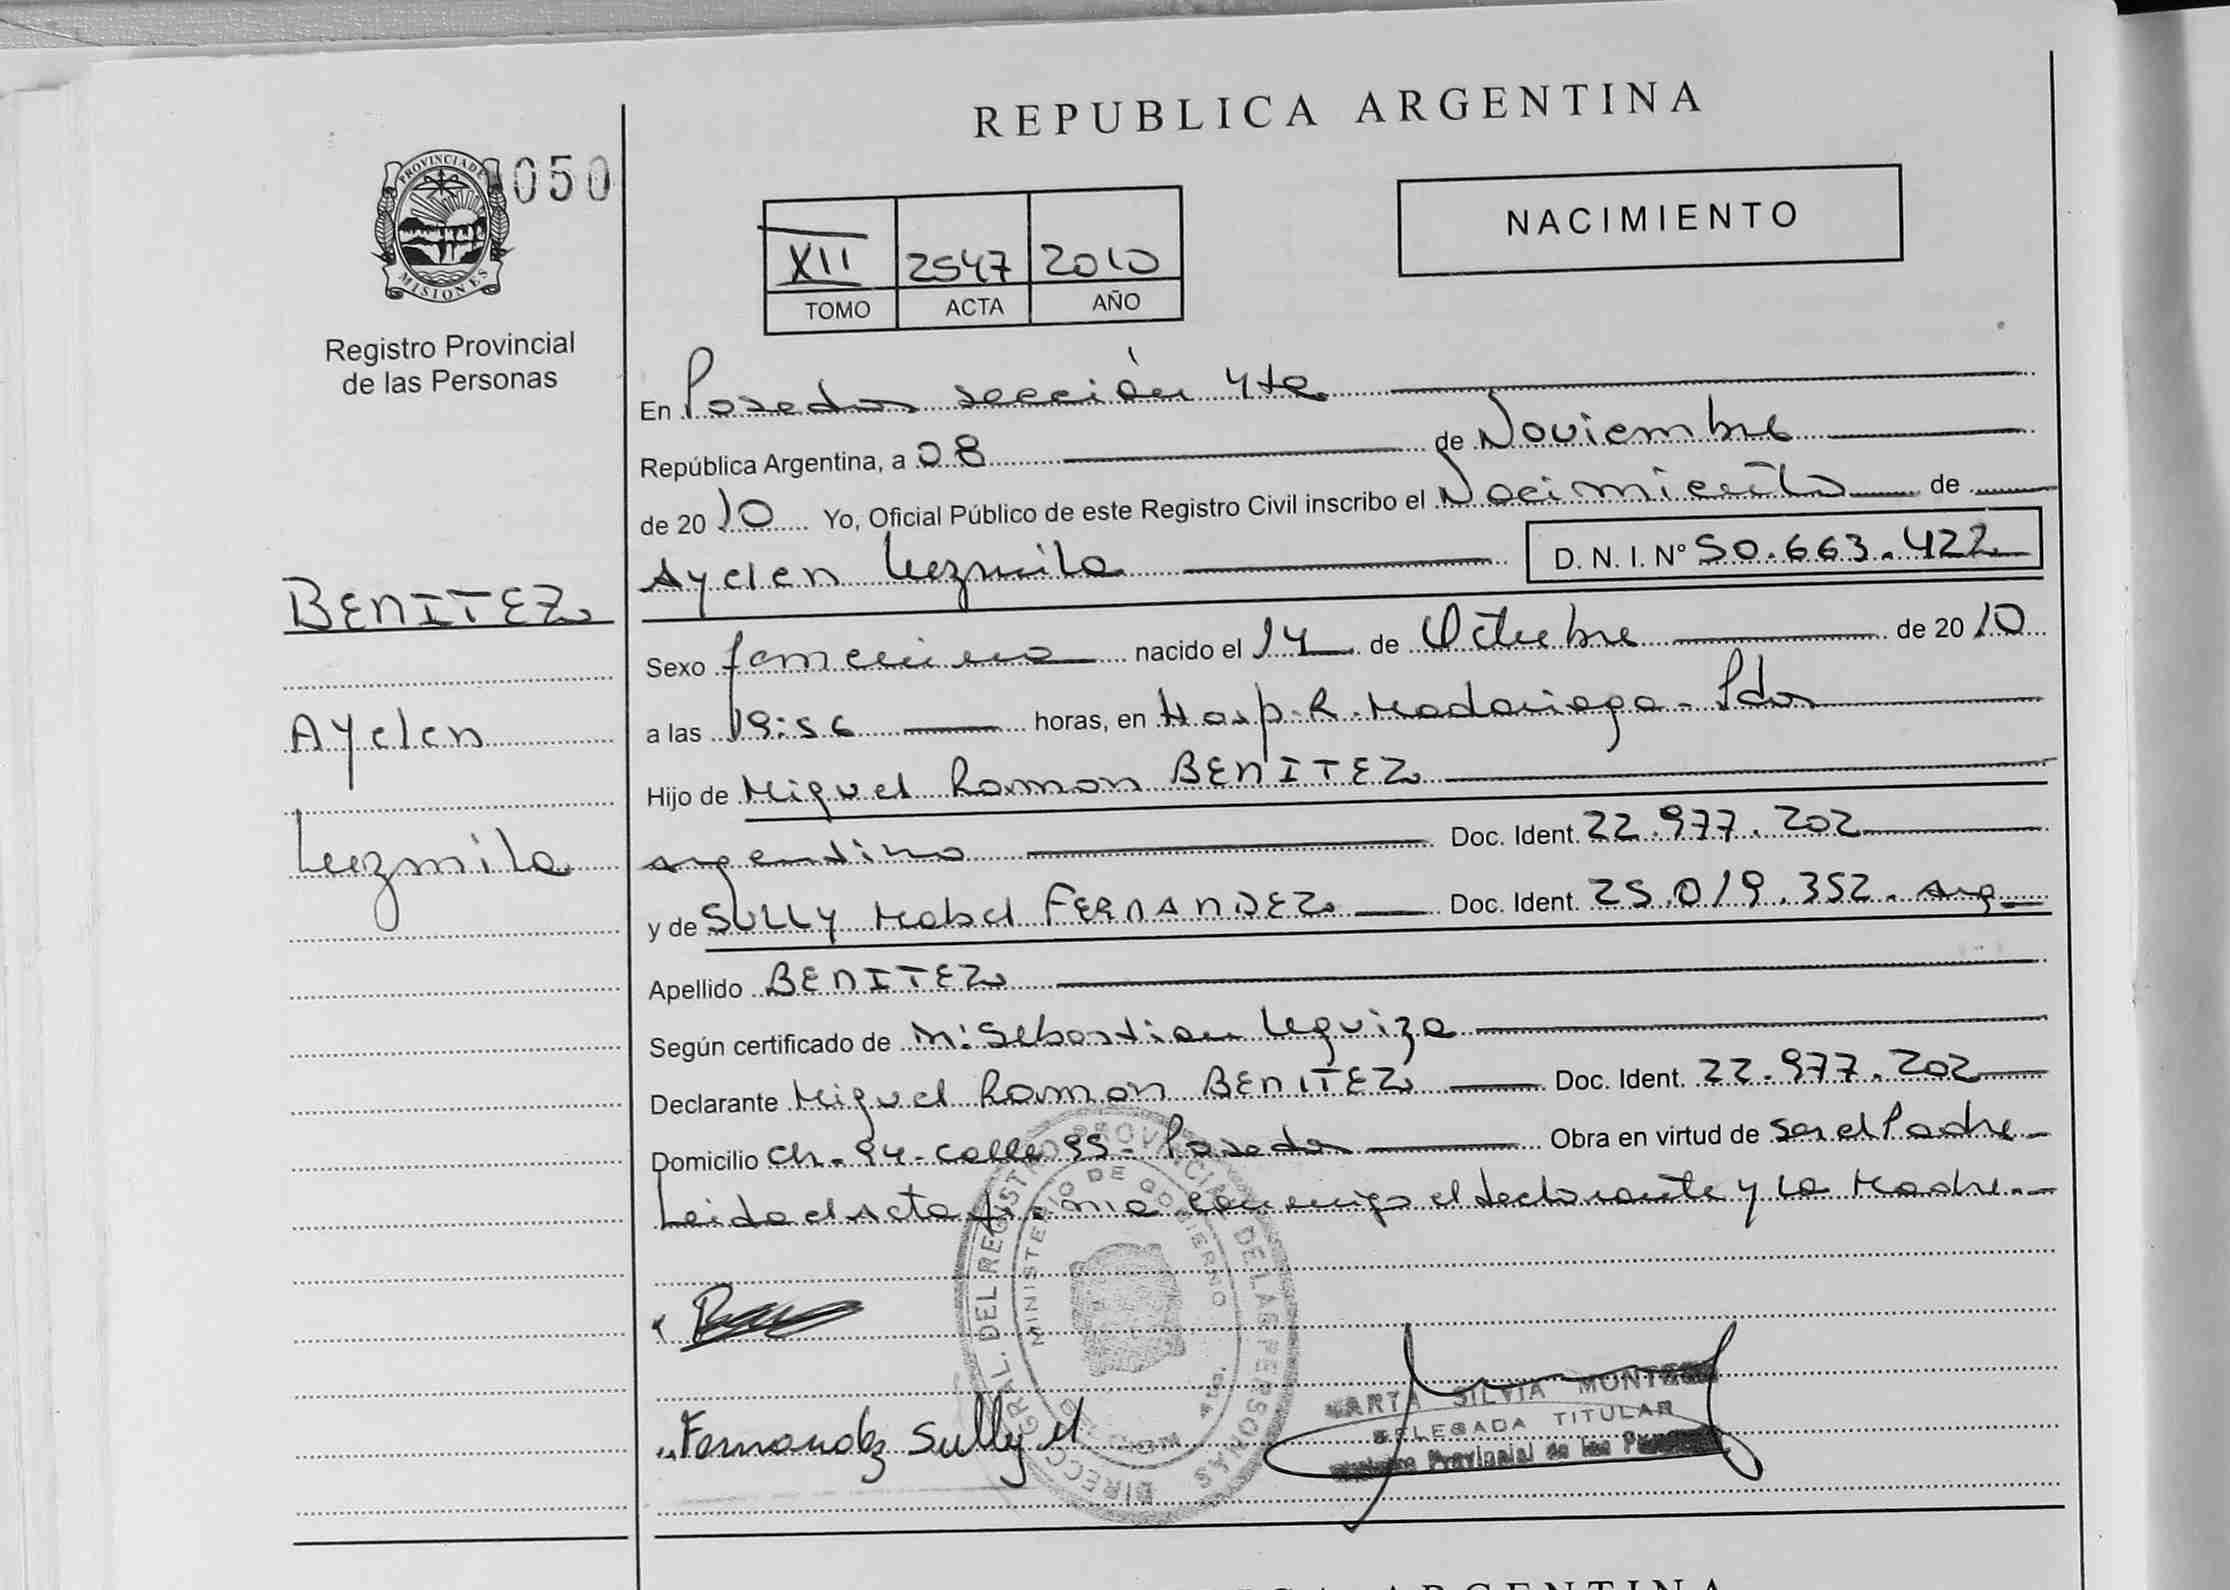 REPUBLICA ARGENTINA
PROVINCIA DE MISIONES
050
Registro Provincial
de las Personas
NACIMIENTO
XII 2547 2010
TOMO ACTA AÑO
En Posadas sección 4ta
República Argentina, a 08 de Noviembre
de 2010 Yo, Oficial Público de este Registro Civil inscribo el Nacimiento de
Ayelen Luzmila D. N. I. N° 50.663.422
BENITEZ
Ayelen
Luzmila
Sexo femenino nacido el 14 de Octubre de 2010
a las 19:56 horas, en Hosp. R. Madariaga - Pdas
Hijo de Miguel Ramon BENITEZ
argentino Doc. Ident. 22.977.202
y de SULLY Mabel FERNANDEZ Doc. Ident. 25.019.352. Arg
Apellido BENITEZ
Según certificado de M: Sebastian Leguiza
Declarante Miguel Ramon BENITEZ Doc. Ident. 22.977.202
Domicilio Ch. 94 - calle 95 - Posadas Obra en virtud de ser el Padre
Leida el Acta firma conmigo el declarante y la Madre
Fernandez Sully M
DIRECC. GRAL. DEL REGISTRO PROVINCIAL DE LAS PERSONAS
MINISTERIO DE GOBIERNO
MARTA SILVIA
DELEGADA TITULAR
Provincial de las
ARGENTINA